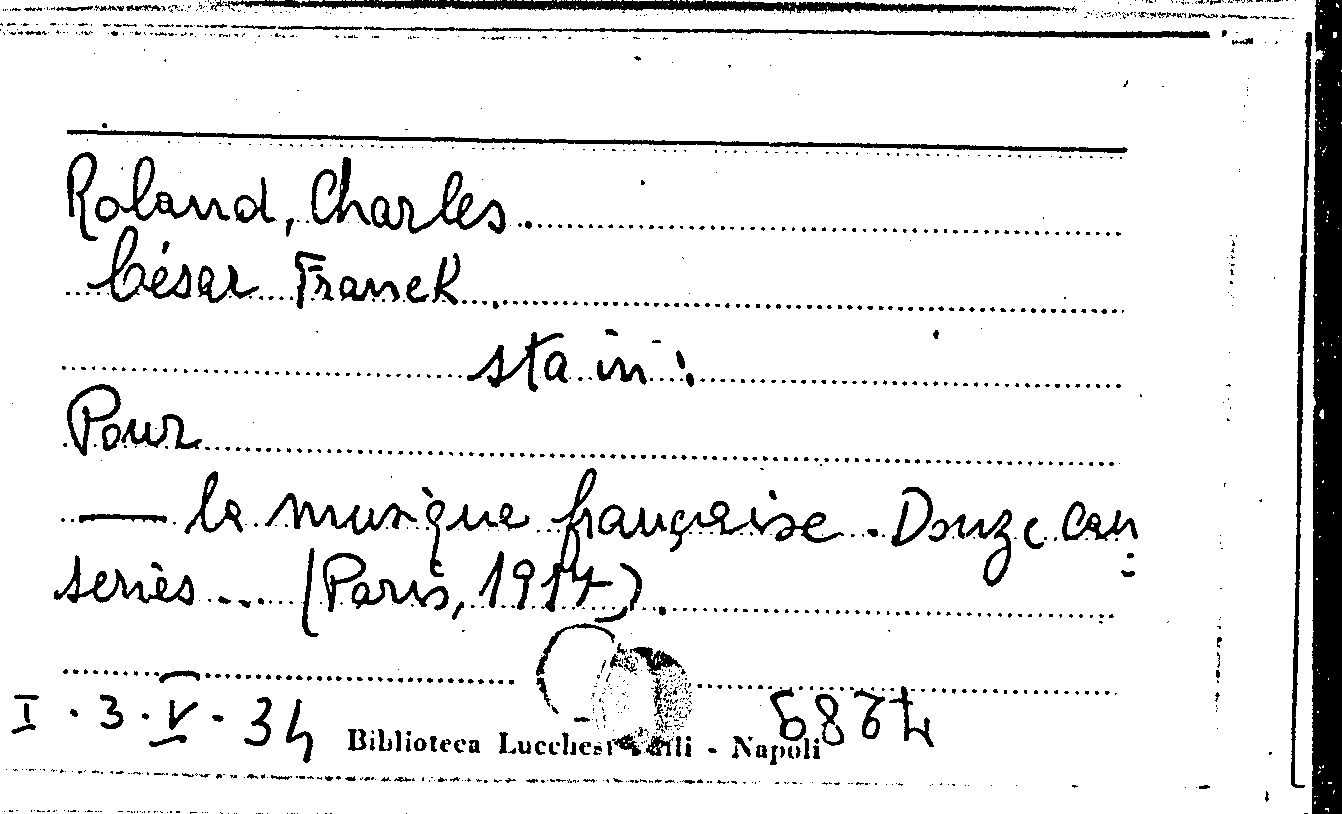 Roland, Charles.
César Franck.
sta in:
Pour
— la musique française. Douze cau
series... (Paris, 1917).
I. 3. V. 34
Biblioteca Lucchesi Palli - Napoli